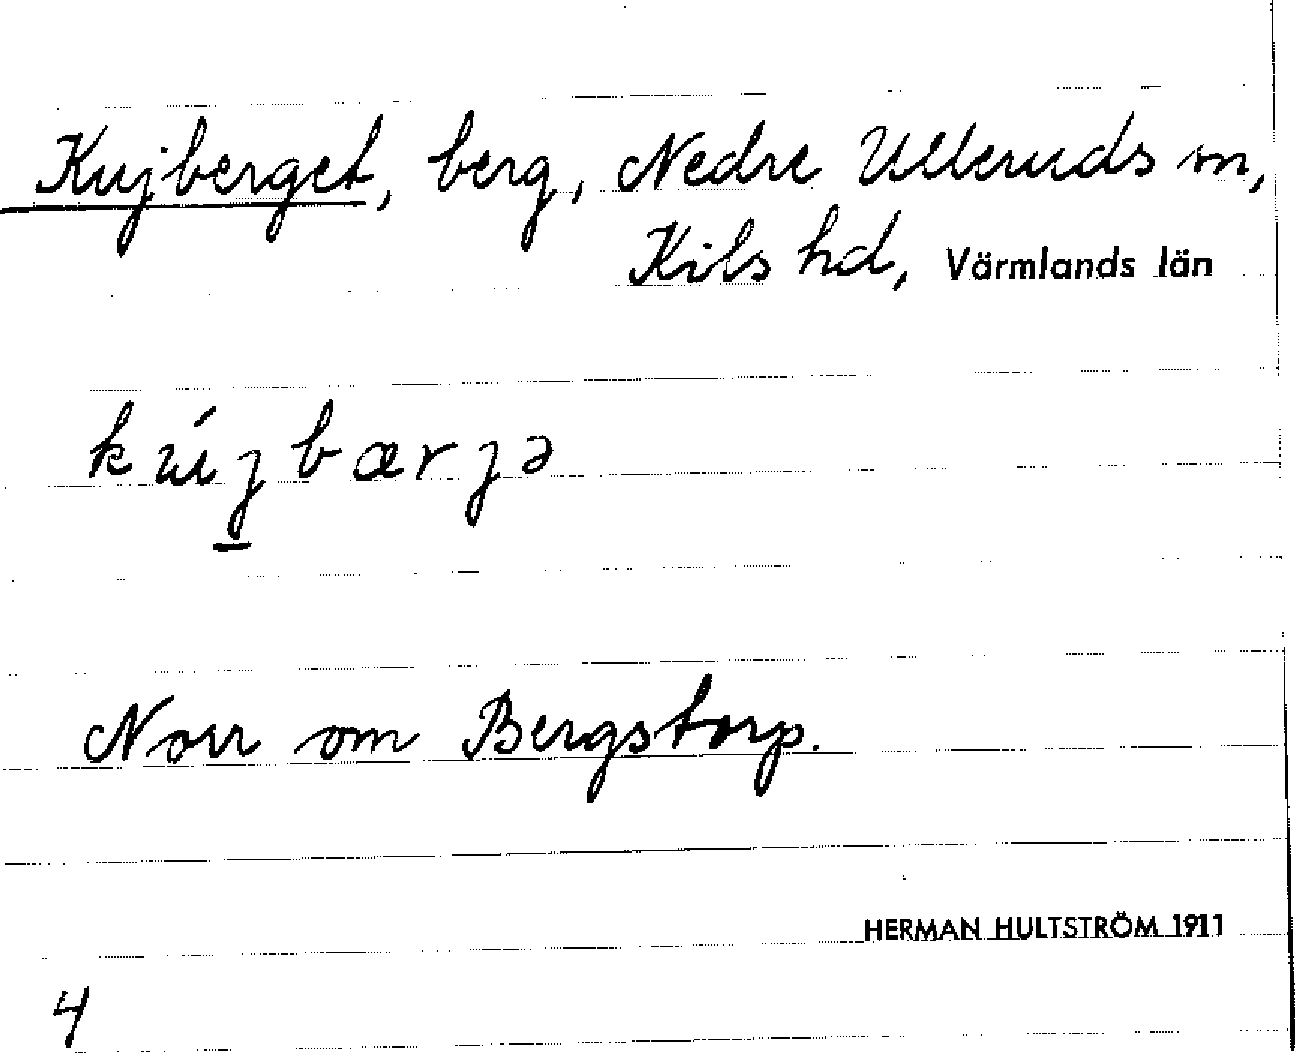 Kujberget, berg, Nedre Ulleruds sn,
Kils hd, Värmlands län
kújbærjə
Norr om Bergstorp.
HERMAN HULTSTRÖM 1911
4